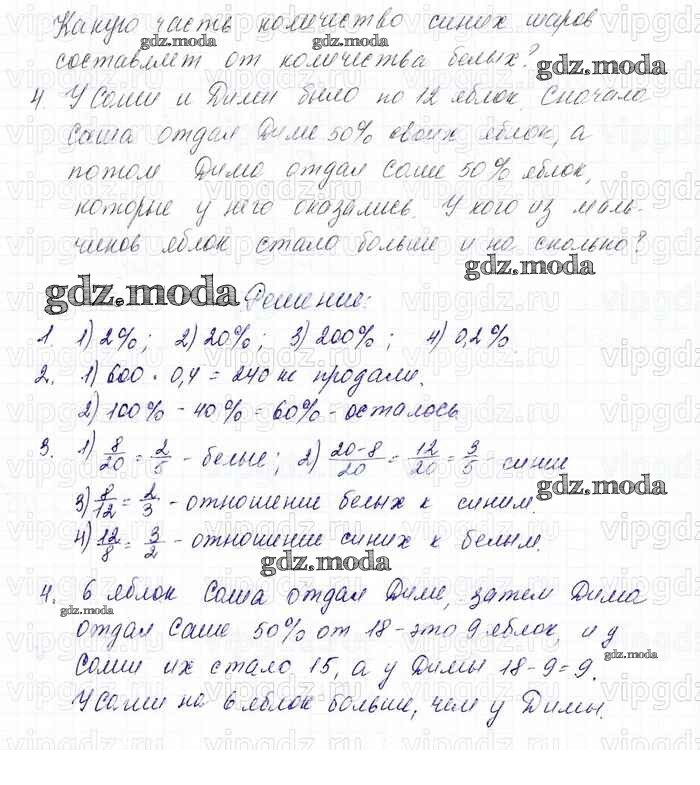 Какую часть количество синих шаров
gdz.moda gdz.moda
составляет от количества белых?
gdz.moda
4. У Саши и Димы было по 12 яблок. Сначала
Саша отдал Диме 50% своих яблок, а
потом Дима отдал Саше 50% яблок,
которые у него оказались. У кого из маль-
чиков яблок стало больше и на сколько?
gdz.moda
gdz.moda Решение:
1. 1) 2%; 2) 20%; 3) 200%; 4) 0,2%.
2. 1) 600 · 0,4 = 240 кг продали.
2) 100% - 40% = 60% - осталось
3. 1) 8/20 = 2/5 - белые; 2) (20-8)/20 = 12/20 = 3/5 - синие
gdz.moda
3) 8/12 = 2/3 - отношение белых к синим.
4) 12/8 = 3/2 - отношение синих к белым.
gdz.moda
4. 6 яблок Саша отдал Диме, затем Дима
gdz.moda
отдал Саше 50% от 18 - это 9 яблок, и у
gdz.moda
Саши их стало 15, а у Димы 18 - 9 = 9.
У Саши на 6 яблок больше, чем у Димы.